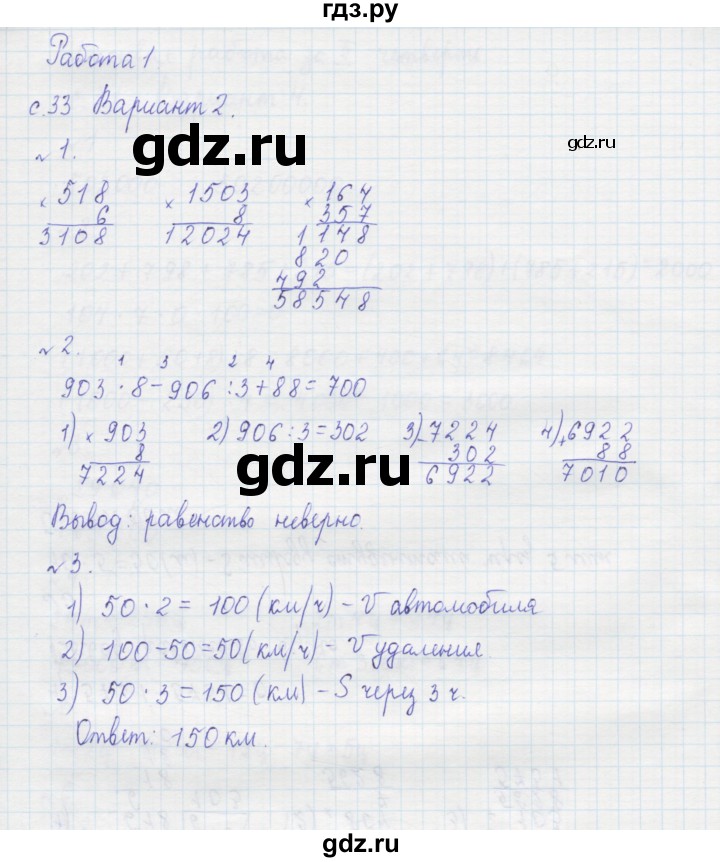 гдз.ру
Работа 1
с.33 Вариант 2.
gdz.ru
gdz.ru
№ 1.
× 518 × 1503 × 164
6 8 357
3108 12024 1148
820
492
58548
gdz.ru
№ 2.
1 3 2 4
903 · 8 – 906 : 3 + 88 = 700
1) × 903 2) 906 : 3 = 302 3) – 7224 4) + 6922
8 302 88
7224 6922 7010
gdz.ru
Вывод: равенство неверно.
№ 3.
1) 50 · 2 = 100 (км/ч) – V автомобиля
gdz.ru
2) 100 – 50 = 50 (км/ч) – V удаления
3) 50 · 3 = 150 (км) – S через 3 ч.
Ответ: 150 км.
gdz.ru
gdz.ru